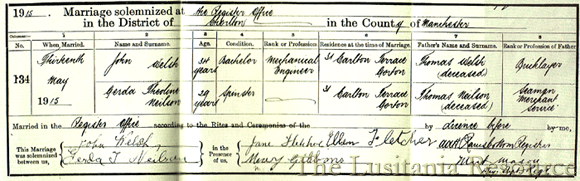 1915 Marriage solemnized at the Register Office
in the District of Chorlton in the County of Manchester
Columns 1 2 3 4 5 6 7 8
No. When Married. Name and Surname. Age Condition. Rank or Profession Residence at the time of Marriage. Father's Name and Surname. Rank or Profession of Father
134 Thirteenth May 1915 John Welsh 34 years Bachelor Mechanical Engineer 31 Carlton Terrace Gorton Thomas Welsh (deceased) Bricklayer
Gerda Theoline Neilson 29 years Spinster 31 Carlton Terrace Gorton Thomas Neilson (deceased) Seaman Merchant Service
Married in the Register Office according to the Rites and Ceremonies of the by Licence before by me,
This Marriage was solemnized between us, John Welsh Gerda T. Neilson in the Presence of us, Jane Ellen Fletcher Mary Gibbons Registrar
The Lusitania Resource